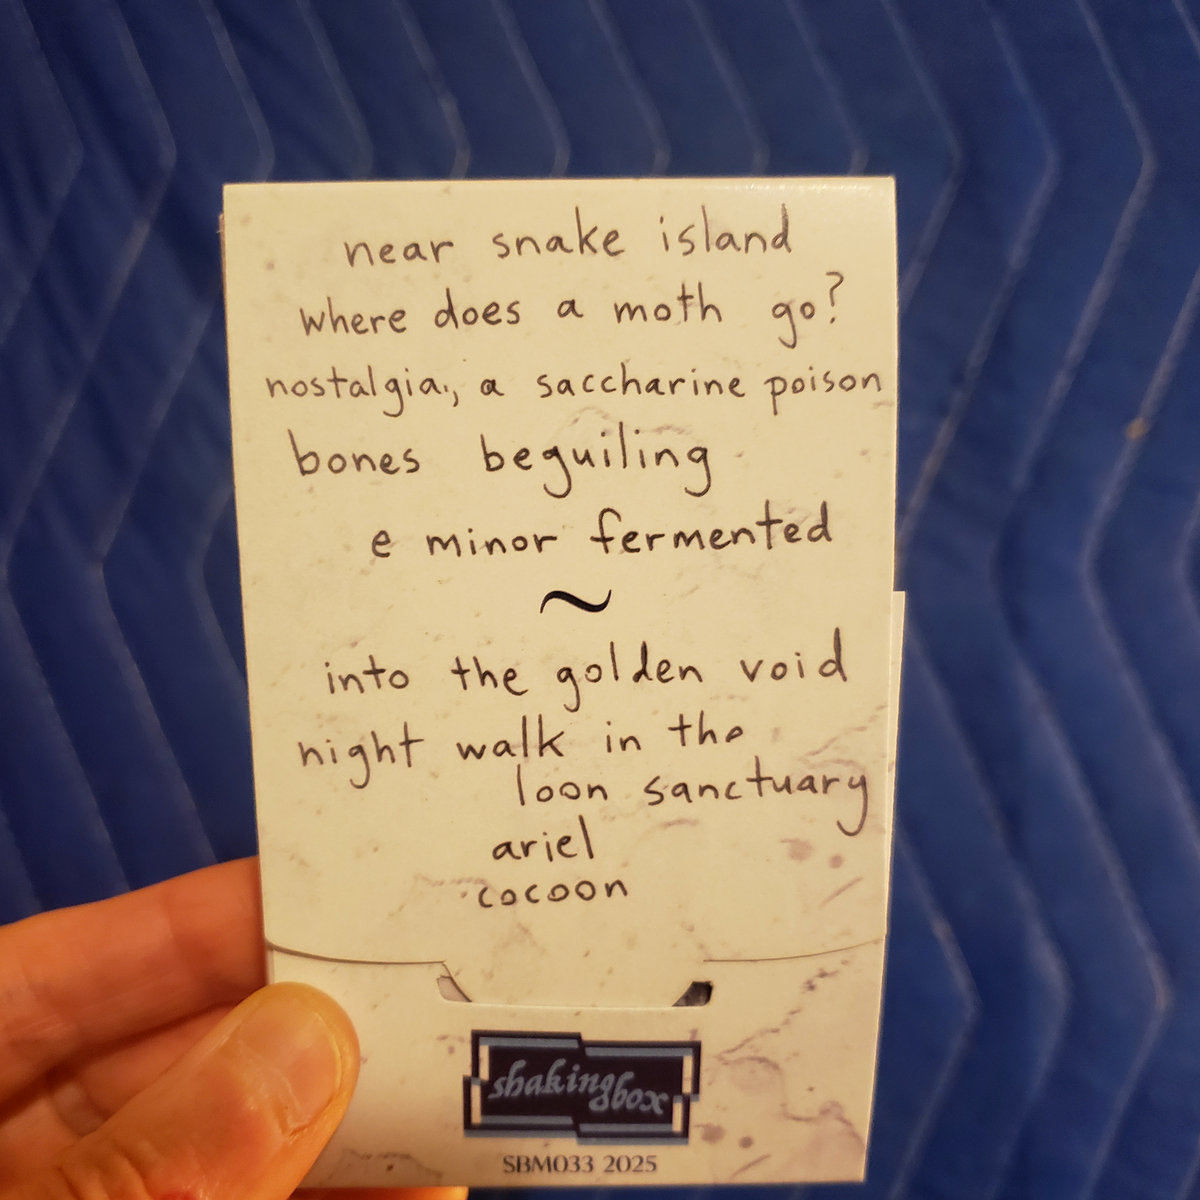 near snake island
where does a moth go?
nostalgia, a saccharine poison
bones beguiling
e minor fermented
~
into the golden void
night walk in the
loon sanctuary
ariel
cocoon
shakingbox
SBM033 2025